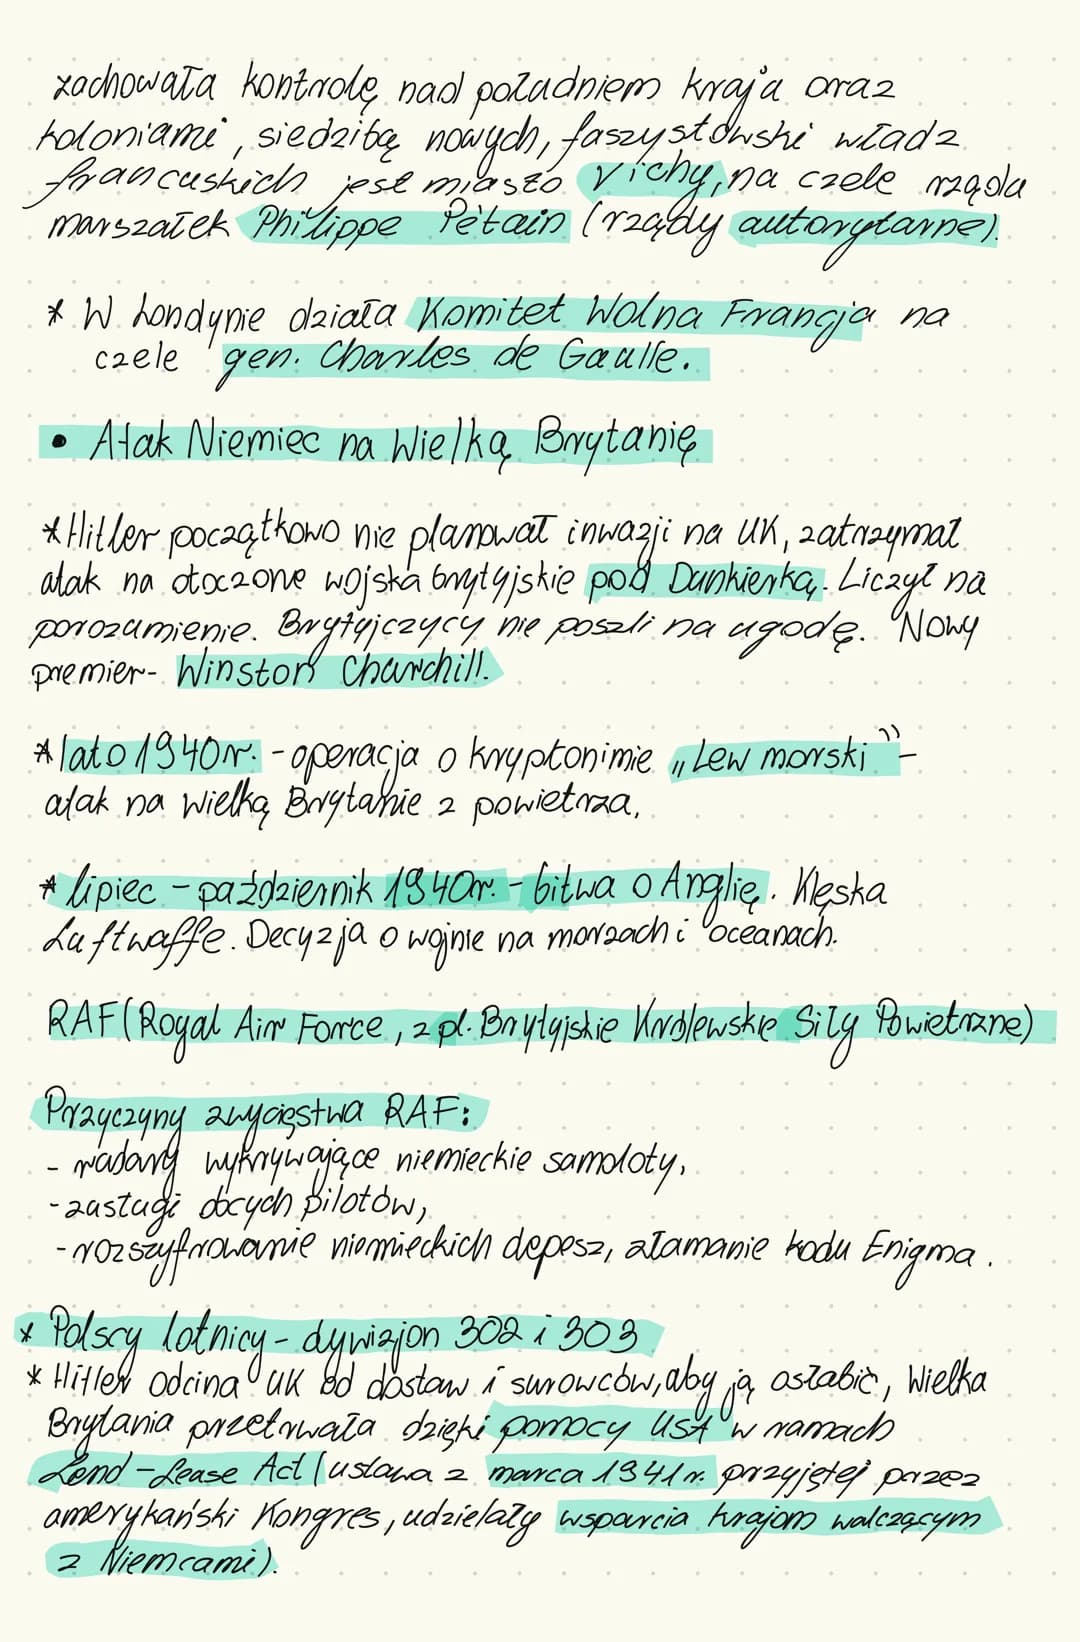 zachowała kontrolę nad południem kraju oraz
koloniami, siedzibą nowych, faszystowski władz
francuskich jest miasto Vichy, na czele rządu
marszałek Philippe Pétain (rządy autorytarne).
* W Londynie działa Komitet Wolna Francja na
czele gen. Charles de Gaulle.
• Atak Niemiec na Wielką Brytanię
* Hitler początkowo nie planował inwazji na UK, zatrzymał
atak na otoczone wojska brytyjskie pod Dunkierką. Liczył na
porozumienie. Brytyjczycy nie poszli na ugodę. Nowy
premier- Winston Churchill.
* lato 1940r. - operacja o kryptonimie „Lew morski” -
atak na Wielką Brytanie z powietrza,
* lipiec - październik 1940r. - bitwa o Anglię. Klęska
Luftwaffe. Decyzja o wojnie na morzach i oceanach.
RAF (Royal Air Force, z pl. Brytyjskie Królewskie Siły Powietrzne)
Przyczyny zwycięstwa RAF:
- radary wykrywające niemieckie samoloty,
- zasługi obcych pilotów,
- rozszyfrowanie niemieckich depesz, złamanie kodu Enigma.
* Polscy lotnicy - dywizjon 302 i 303
* Hitler odcina UK od dostaw i surowców, aby ją osłabić, Wielka
Brytania przetrwała dzięki pomocy USA w ramach
Lend-Lease Act (ustawa z marca 1941r. przyjętej przez
amerykański Kongres, udzielały wsparcia krajom walczącym
z Niemcami).